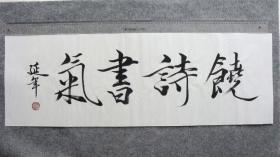 饒詩書氣
延年